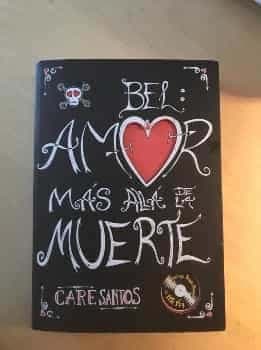 BEL:
AMOR
MÁS ALLÁ DE LA
MUERTE
CARE SANTOS